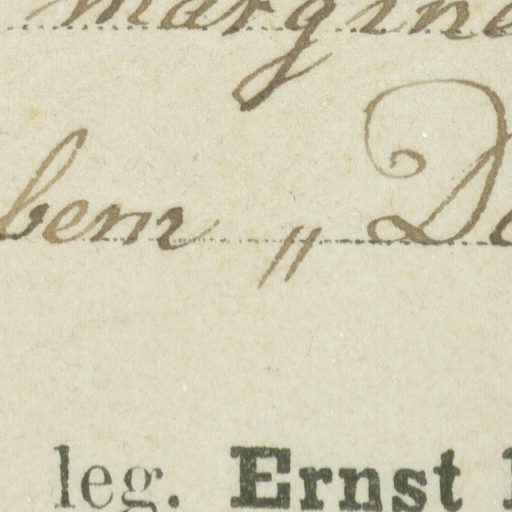 margine
bem „ D
leg. Ernst